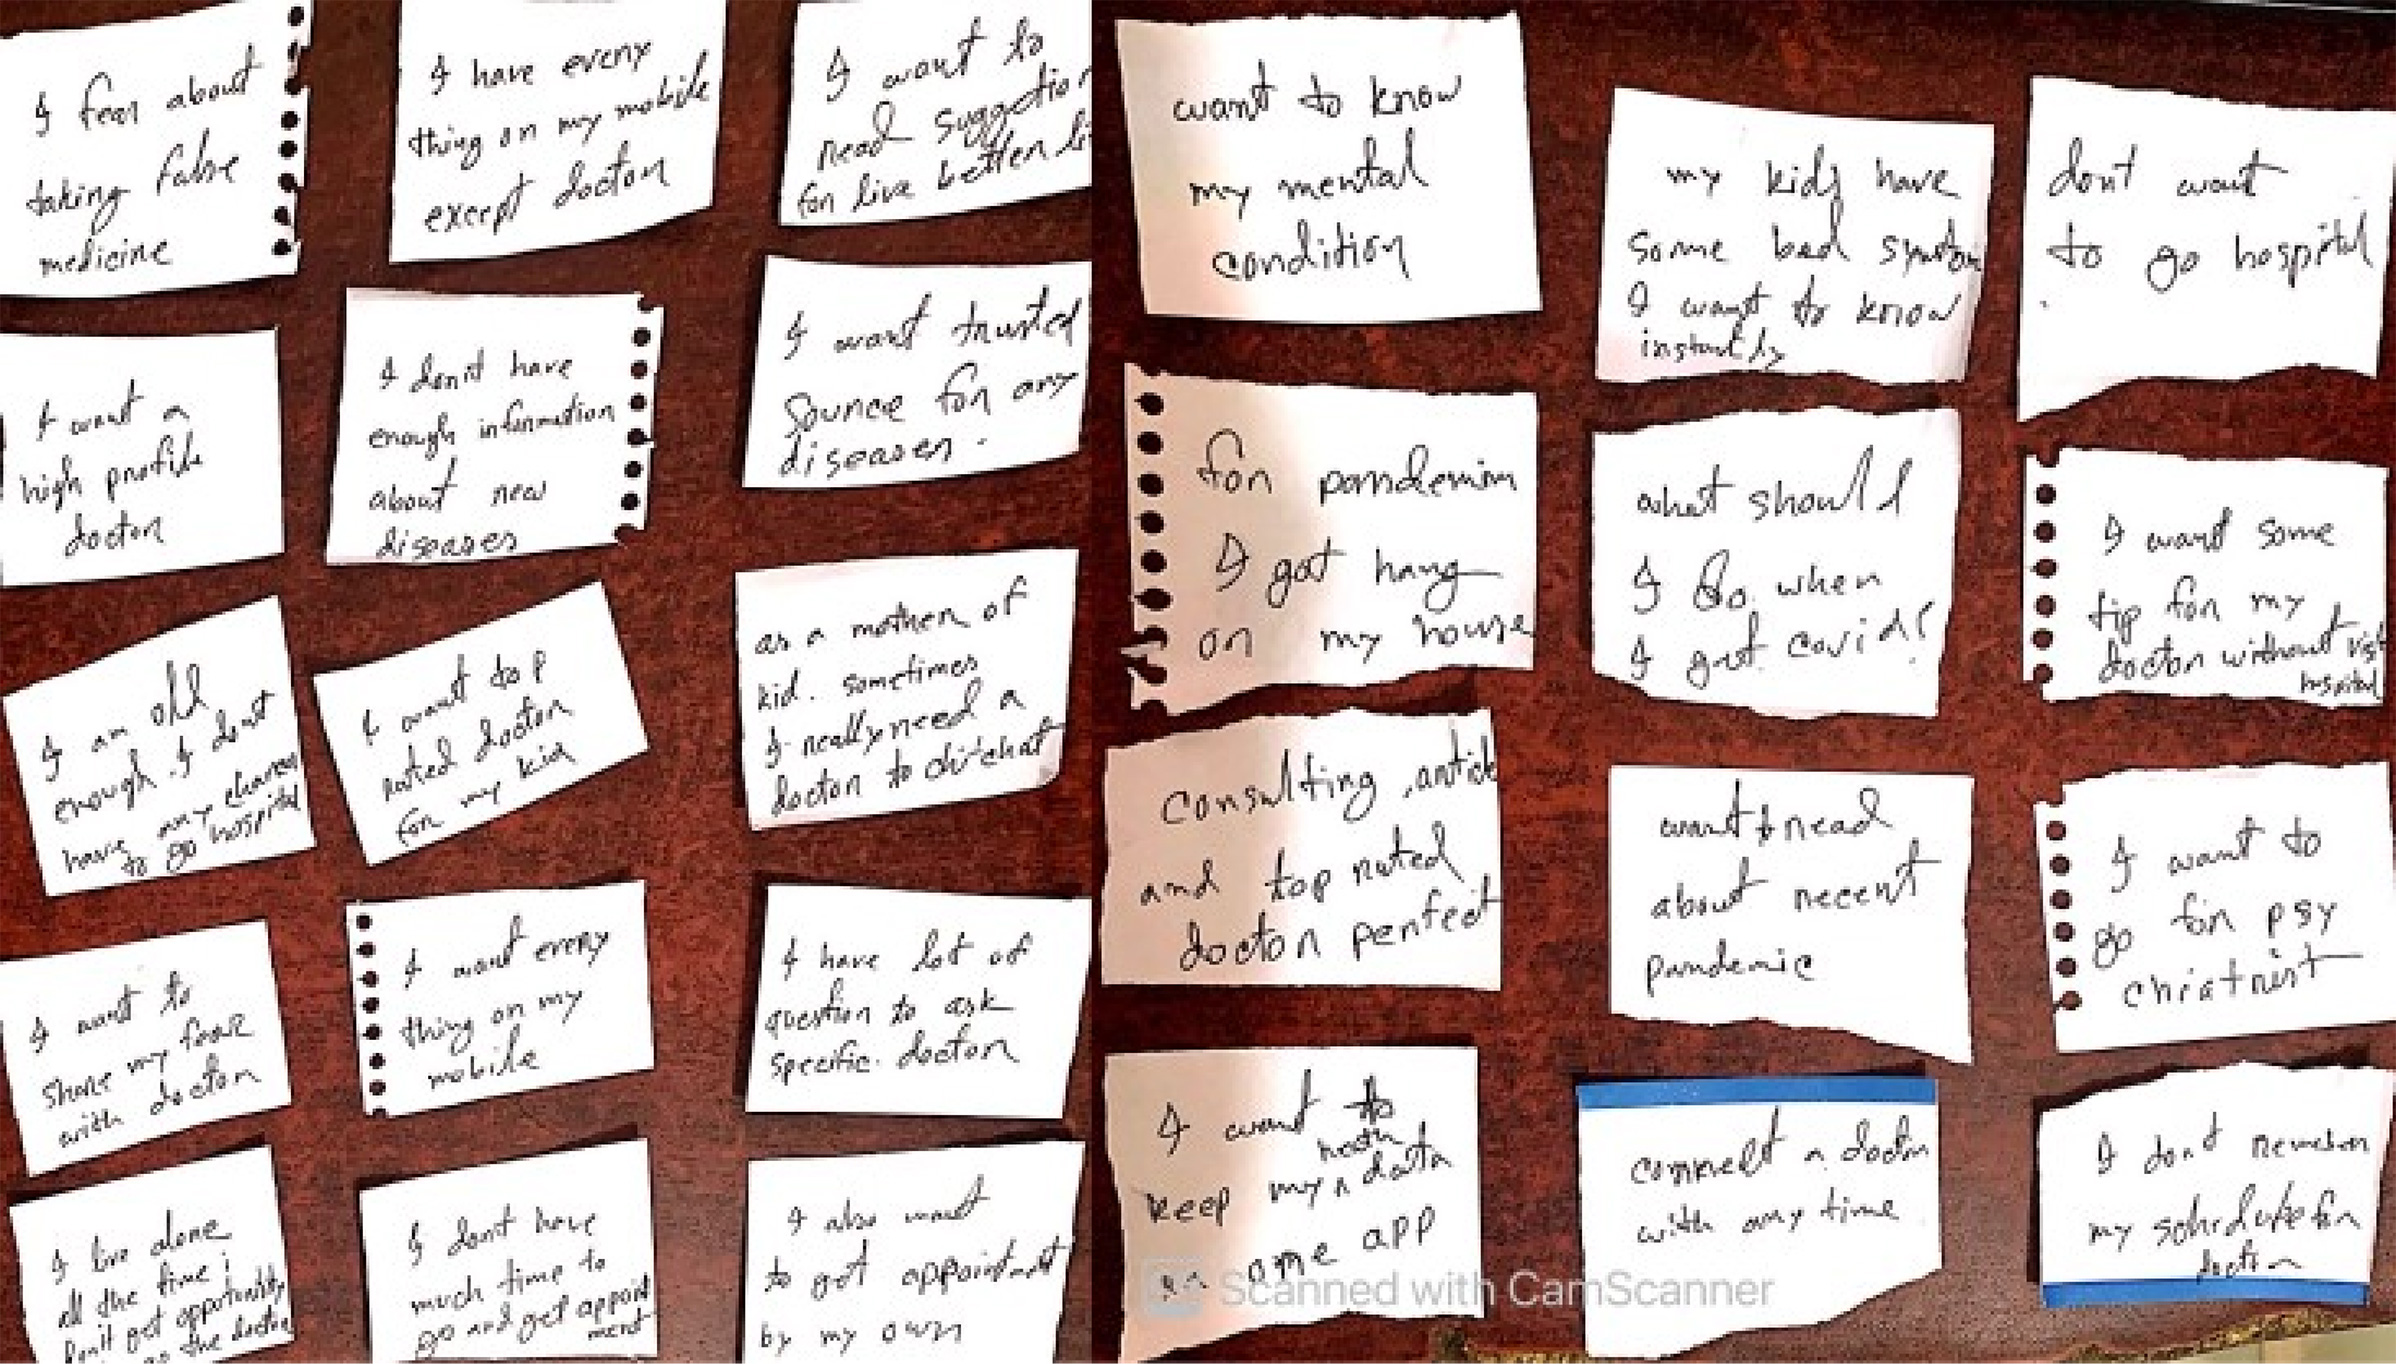 I fear about
taking false
medicine
I have every
thing on my mobile
except doctor
I want to
read suggetion
for live better
I want a
high profile
doctor
I don't have
enough information
about new
diseases
I want trusted
Source for any
diseases.
I am old
enough. I dont
have any chance
to go hospital
I want top
rated doctor
for my kid
as a mother of
kid. sometimes
I really need a
doctor to
I want to
share my
with doctor
I want every
thing on my
mobile
I have lot of
question to ask
specific. doctor
I live alone
all the time i
Don't get opportunity
the doctor
I dont have
much time to
go and get appoint
ment
I also want
to get appointment
by my own
want to know
my mental
condition
my kids have
some bad
I want to know
instantly
dont want
to go hospital
for
I got hang
on my house
what should
I do when
I get covid?
I want some
tip for my
doctor without visit
hospital
consulting,
and top rated
doctor perfect
want to read
about recent
pandemic
I want to
go for psy
chiatrist
I want to
keep my data
one app
connect a doctor
with any time
I dont
my schedule for
doctor
Scanned with CamScanner